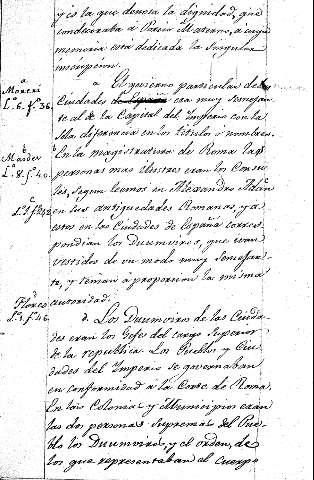 y es la que denota la dignidad, que
condecoraba á Patin Materno, á cuya
memoria está dedicada la singular
inscripcion.
a
Moreri
L.º 6. f.º 36.
a. El govierno particular de las
Ciudades de España era muy semejan
te al de la Capital del Imperio con la
sola diferencia en los titulos o nombres.
b
Masdeu
L.º 8. f.º 40.
b En la magistratura de Roma las
personas mas ilustres eran los Consu
les, segun leemos en Alexandro Adán
c
L.º 1. f.º 242.
en sus antiguedades Romanas, y á
estos en las Ciudades de España corres
pondian los Duumviros, que eran
vestidos de un modo muy semejan
te, y tenian á proporcion la misma
autoridad.
d
Flores
L.º 1. f.º 46.
d. Los Duumviros de las Ciuda
des eran los Gefes del cargo Superior
de la republica. Los Pueblos y Ciu
dades del Imperio se governaban
en conformidad á la Corte de Roma.
En las Colonias y Municipios eran
las dos personas Supremas del Pue
blo los Duumviros, y el orden, de
los que representaban al cuerpo